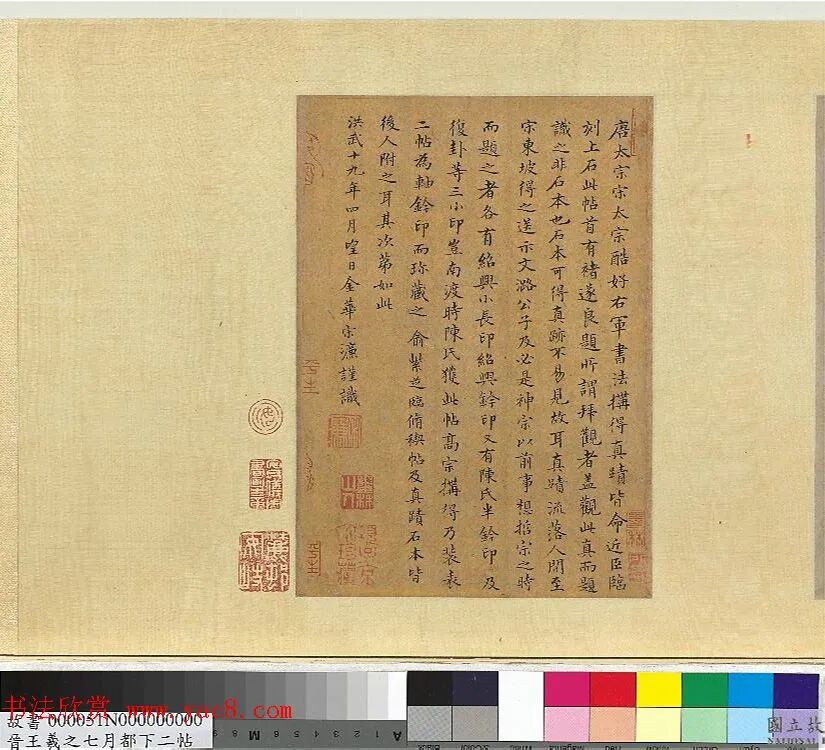 唐太宗宋太宗酷好右軍書法搆得真蹟皆命近臣臨
刻上石此帖首有褚遂良題所謂拜觀者盖觀此真而題
識之非石本也石本可得真跡不易見故耳真蹟流落人間至
宗東坡得之送示文潞公子及必是神宗以前事想哲宗之時
而題之者各有紹興小長印紹興鈐印又有陳氏半鈐印及
復卦等三小印豈南渡時陳氏獲此帖高宗搆得乃裝表
二帖為軸鈐印而珎藏之俞紫芝臨脩禊帖及真蹟石本皆
後人附之耳其次第如此
洪武十九年四月望日金華宋濂謹識
书法欣赏 www.yac8.com
故書 000051N000000000
晉王羲之七月都下二帖
Black
3/Color
White
Magenta
Red
Yellow
Green
Cyan
國立故